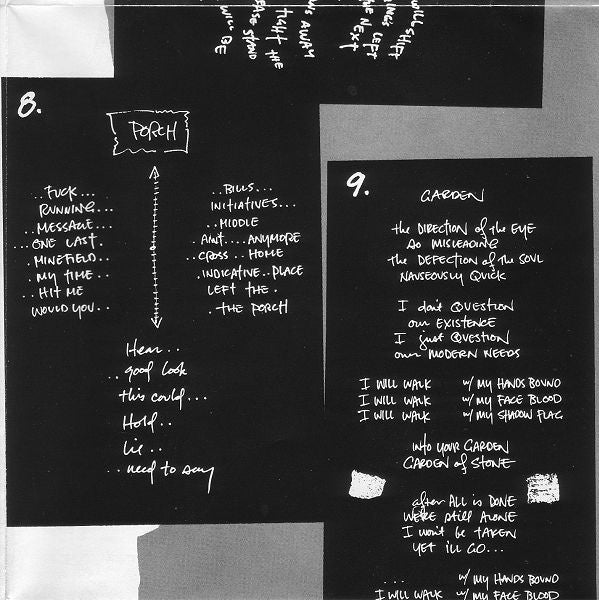 WILL SHIFT
INGS LEFT
HE NEXT
AWAY
THE
EASE STAND
WILL BE
8.
PORCH
..FUCK...
RUNNING...
..MESSAGE...
...ONE LAST.
..MINEFIELD..
..MY TIME..
..HIT ME
WOULD YOU..
..BILLS...
INITIATIVES...
..MIDDLE
..AINT....ANYMORE
..CROSS..HOME
.INDICATIVE..PLACE
LEFT THE.
.THE PORCH
Hear..
..good look
this could...
Hold..
Lie..
..need to say
9.
GARDEN
the DIRECTION of the EYE
so MISLEADING
the DEFECTION of the SOUL
NAUSEOUSLY QUICK
I don't QUESTION
our EXISTENCE
I just QUESTION
our MODERN NEEDS
I WILL WALK w/ MY HANDS BOUND
I WILL WALK w/ MY FACE BLOOD
I WILL WALK w/ MY SHADOW FLAG
INTO YOUR GARDEN
GARDEN of STONE
after ALL is DONE
WE'RE STILL ALONE
I won't be TAKEN
YET I'LL GO...
... w/ MY HANDS BOUND
I WILL WALK w/ MY FACE BLOOD